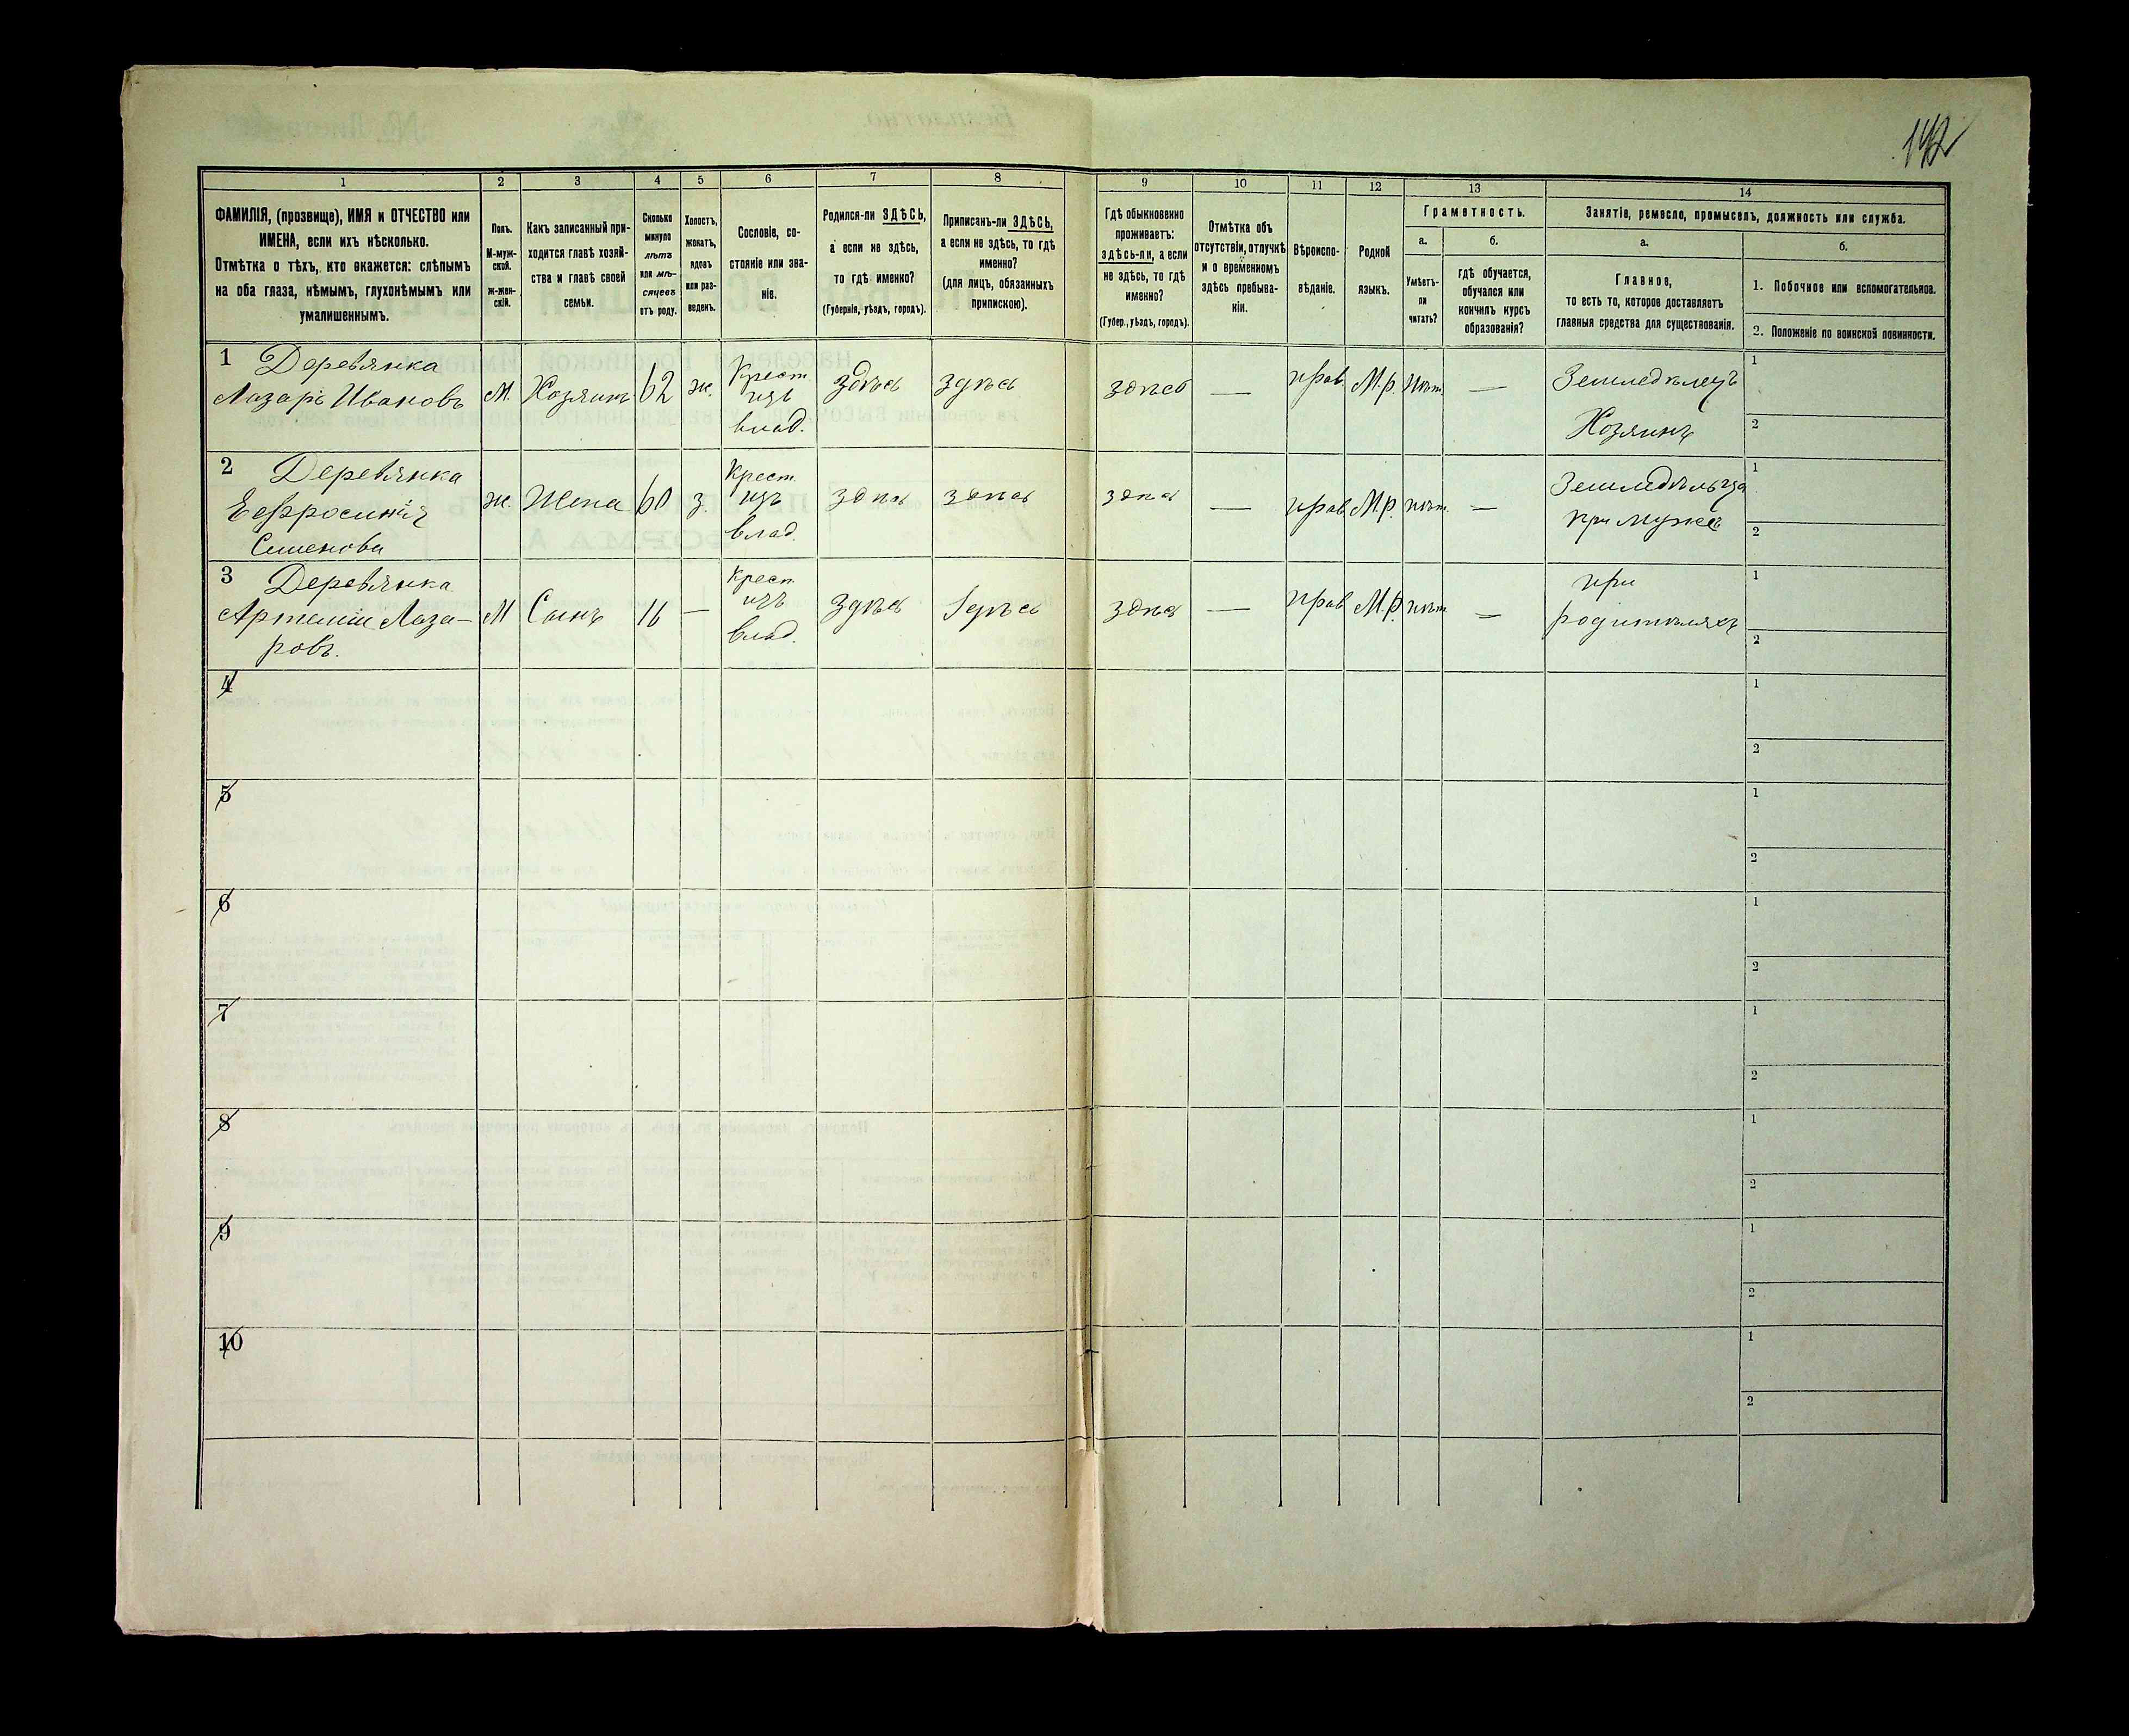 142
1 2 3 4 5 6 7 8 9 10 11 12 13 14
ФАМИЛІЯ, (прозвище), ИМЯ и ОТЧЕСТВО или
ИМЕНА, если ихъ нѣсколько.
Отмѣтка о тѣхъ, кто окажется: слѣпымъ
на оба глаза, нѣмымъ, глухонѣмымъ или
умалишеннымъ.
Полъ.
М-муж-
ской.
ж-жен-
скій.
Какъ записанный при-
ходится главѣ хозяй-
ства и главѣ своей
семьи.
Сколько
минуло
лѣтъ
или мѣ-
сяцевъ
отъ роду.
Холостъ,
женатъ,
вдовъ
или раз-
веденъ.
Сословіе, со-
стояніе или зва-
ніе.
Родился-ли ЗДѢСЬ,
а если не здѣсь,
то гдѣ именно?
(Губернія, уѣздъ, городъ).
Приписанъ-ли ЗДѢСЬ,
а если не здѣсь, то гдѣ
именно?
(для лицъ, обязанныхъ
припискою).
Гдѣ обыкновенно
проживаетъ:
здѣсь-ли, а если
не здѣсь, то гдѣ
именно?
(Губер., уѣздъ, городъ).
Отмѣтка объ
отсутствіи, отлучкѣ
и о временномъ
здѣсь пребыва-
ніи.
Вѣроиспо-
вѣданіе.
Родной
языкъ.
Грамотность.
а.
Умѣетъ-
ли
читать?
б.
гдѣ обучается,
обучался или
кончилъ курсъ
образованія?
Занятіе, ремесло, промыселъ, должность или служба.
а.
Главное,
то есть то, которое доставляетъ
главныя средства для существованія.
б.
1. Побочное или вспомогательное.
2. Положеніе по воинской повинности.
1 Деревянка
Лазарь Ивановъ
М. Хозяинъ 62 ж.
Крест
изъ
влад.
здѣсь здѣсь здѣсь — прав. М.р. Нѣт. —
Земледѣлецъ
Хозяинъ
1
2
2 Деревянка
Евфросинія
Семенова
ж. Жена 60 з.
Крест.
изъ
влад.
здѣсь здѣсь здѣсь — прав. М.р. нѣт. —
Земледѣльца
при мужѣ
1
2
3 Деревянка
Артемій Лаза-
ровъ.
М Сынъ 16 —
Крест.
изъ
влад.
здѣсь здѣсь здѣсь — прав М.р. нѣт —
при
родителяхъ
1
2
4
1
2
5
1
2
6
1
2
7
1
2
8
1
2
9
1
2
10
1
2